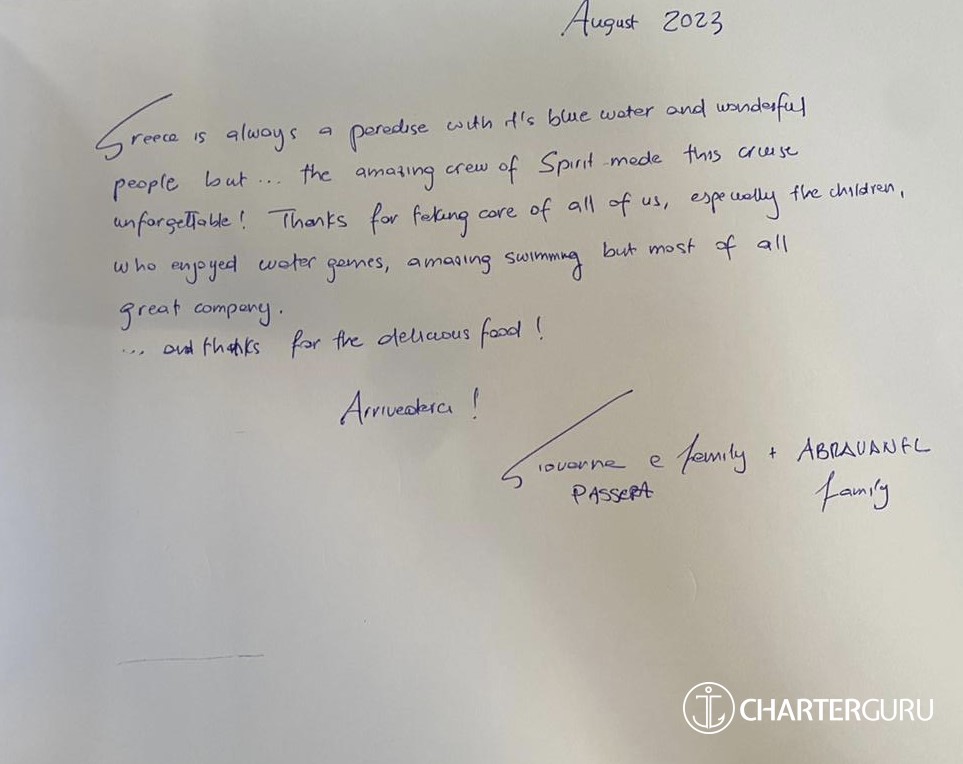 August 2023
Greece is always a paradise with it's blue water and wonderful
people but... the amazing crew of Spirit made this cruise
unforgettable! Thanks for taking care of all of us, especially the children,
who enjoyed water games, amazing swimming but most of all
great company.
... and thanks for the delicious food!
Arrivederci!
Giovanna e family + ABRAVANEL
PASSERA family
CHARTERGURU